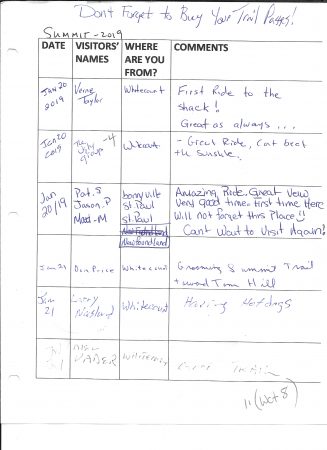 Don't Forget to Buy Your Trail Passes!
SUMMIT - 2019
DATE VISITORS' NAMES WHERE ARE YOU FROM? COMMENTS
Jan 20 2019 Verne Taylor Whitecourt First Ride to the
shack!
Great as always...
Jan 20 2019 The Ugly group -4 Whitecourt - Great Ride, Cant beat
the Sunshine.
Jan 20/19 Pat.S bonnyville Amazing Ride. Great View
Jason.P St. Paul Very good time - first time Here
Matt-M St. Paul Will not forget this Place!!
Newfoundland Cant Wait to Visit Again!
Newfoundland
Jan 21 Don Price Whitecourt Grooming Summit Trail
toward Tom Hill
Jan 21 Whitecourt Having Hotdogs
Whitecourt